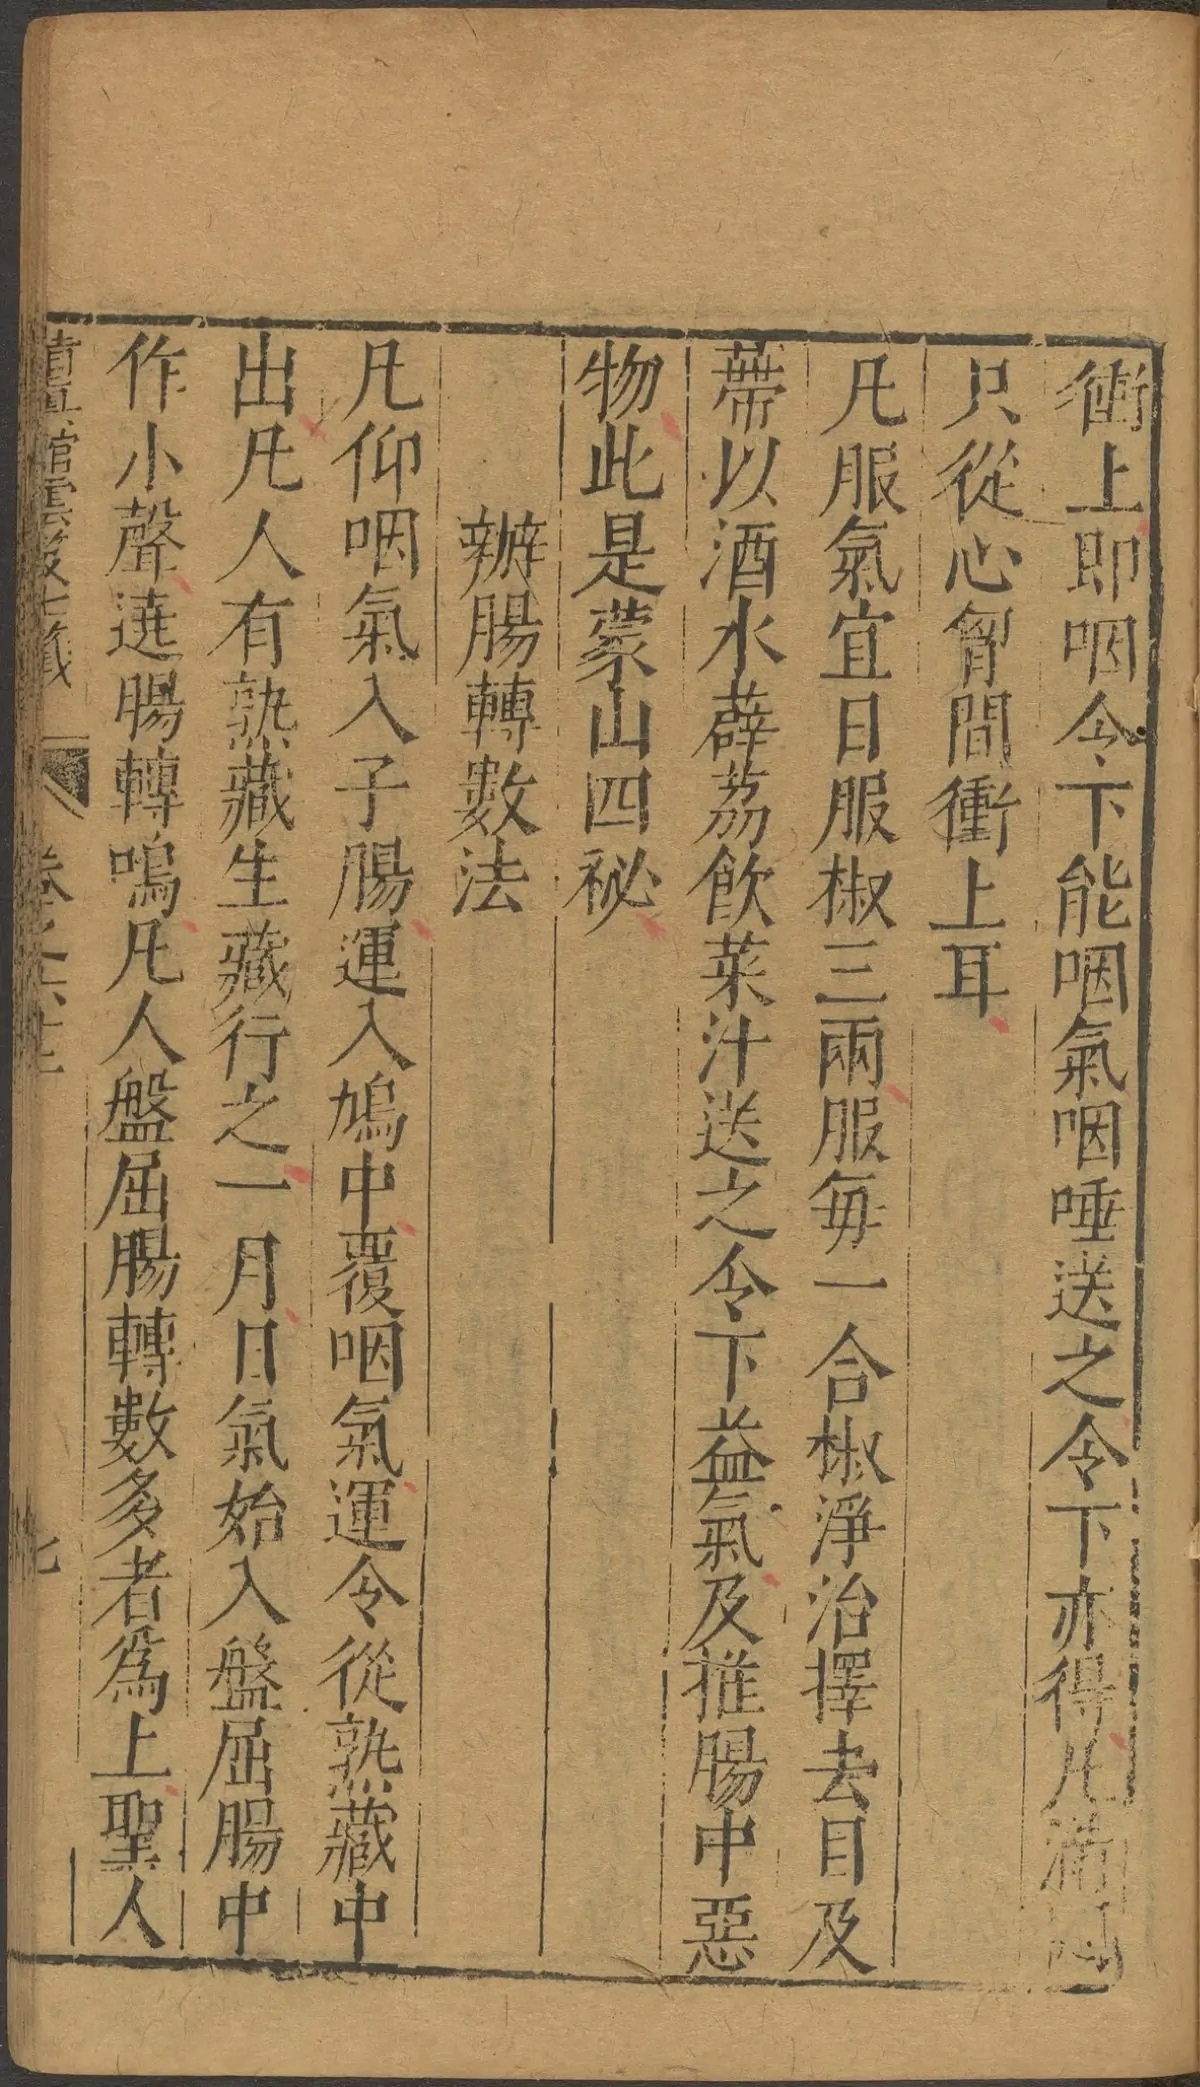 衝上即咽令下能咽氣咽唾送之令下亦得凡滿
只從心胷間衝上耳
凡服氣宜日服椒三兩服每一合椒淨治擇去目及
蔕以酒水薜荔飲菜汁送之令下益氣及推腸中惡
物此是蒙山四祕
辦腸轉數法
凡仰咽氣入子腸運入鳩中覆咽氣運令從熟藏中
出凡人有熟藏生藏行之一月日氣始入盤屈腸中
作小聲遶腸轉鳴凡人盤屈腸轉數多者爲上聖人
館雲笈七籤 卷之六十二 七